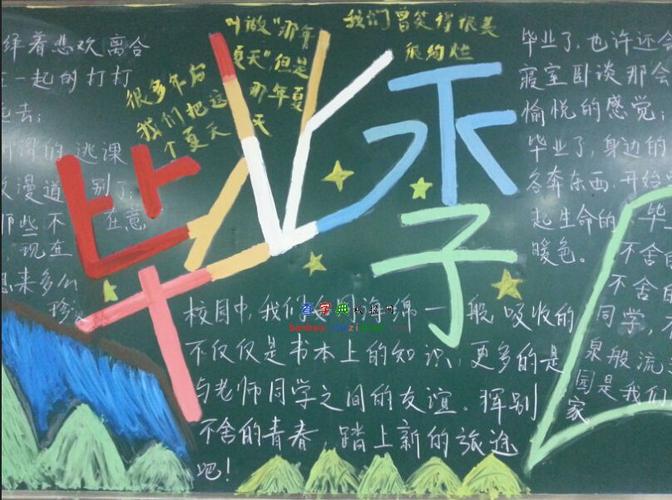 绎着悲欢离合
一起的打打
起去;
的逃课
漫道 别了
那些不 在意
现在
很多年后
我们把这
个夏天
叫做“那年
夏天”,但是
那年夏
天
我们曾笑得很美
很灿烂
毕业季
校园中,我们 海绵一般吸收的
不仅仅是书本上的知识,更多的是
与老师同学之间的友谊。挥别
不舍的青春,踏上新的旅途
吧!
毕业了,也许还会
寝室卧谈那会
愉悦的感觉
毕业了,身边的
各奔东西,开始
起生命的 毕
暖色。不舍
不舍
同学,
泉般流
园是我们
家